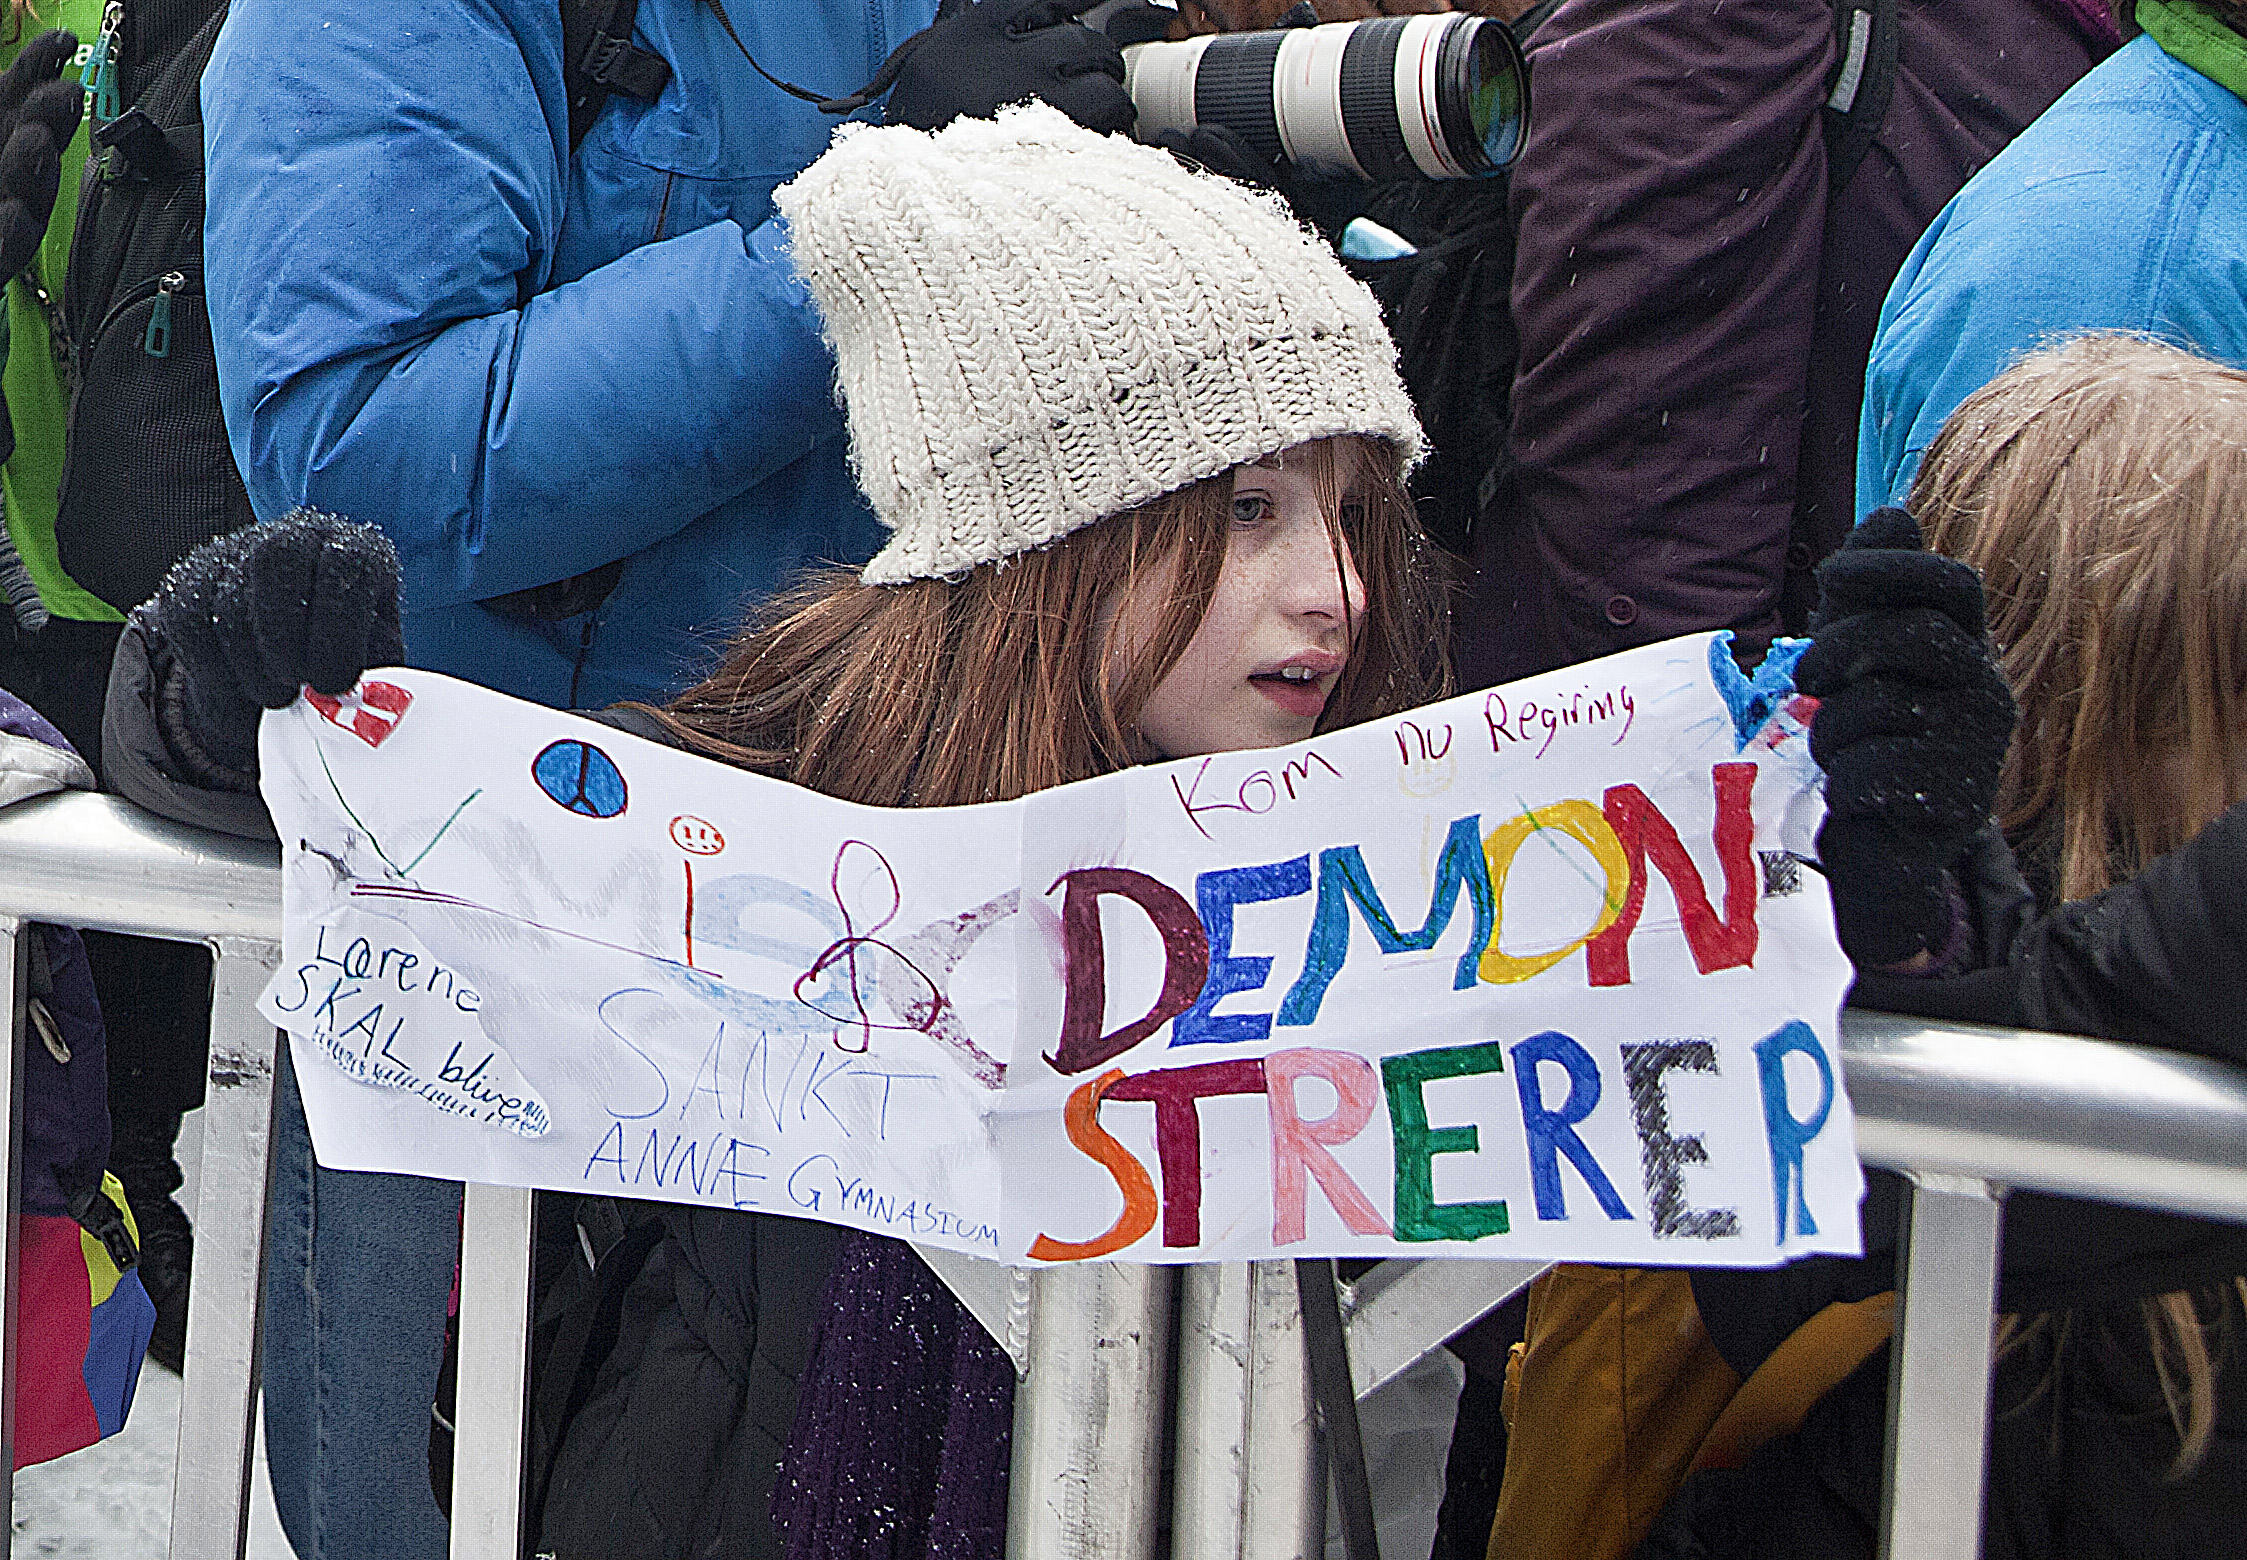 Kom nu Regiring
Vi DEMON
STRERER
Larene
SKAL blive
SANKT
ANNÆ GYMNASIUM